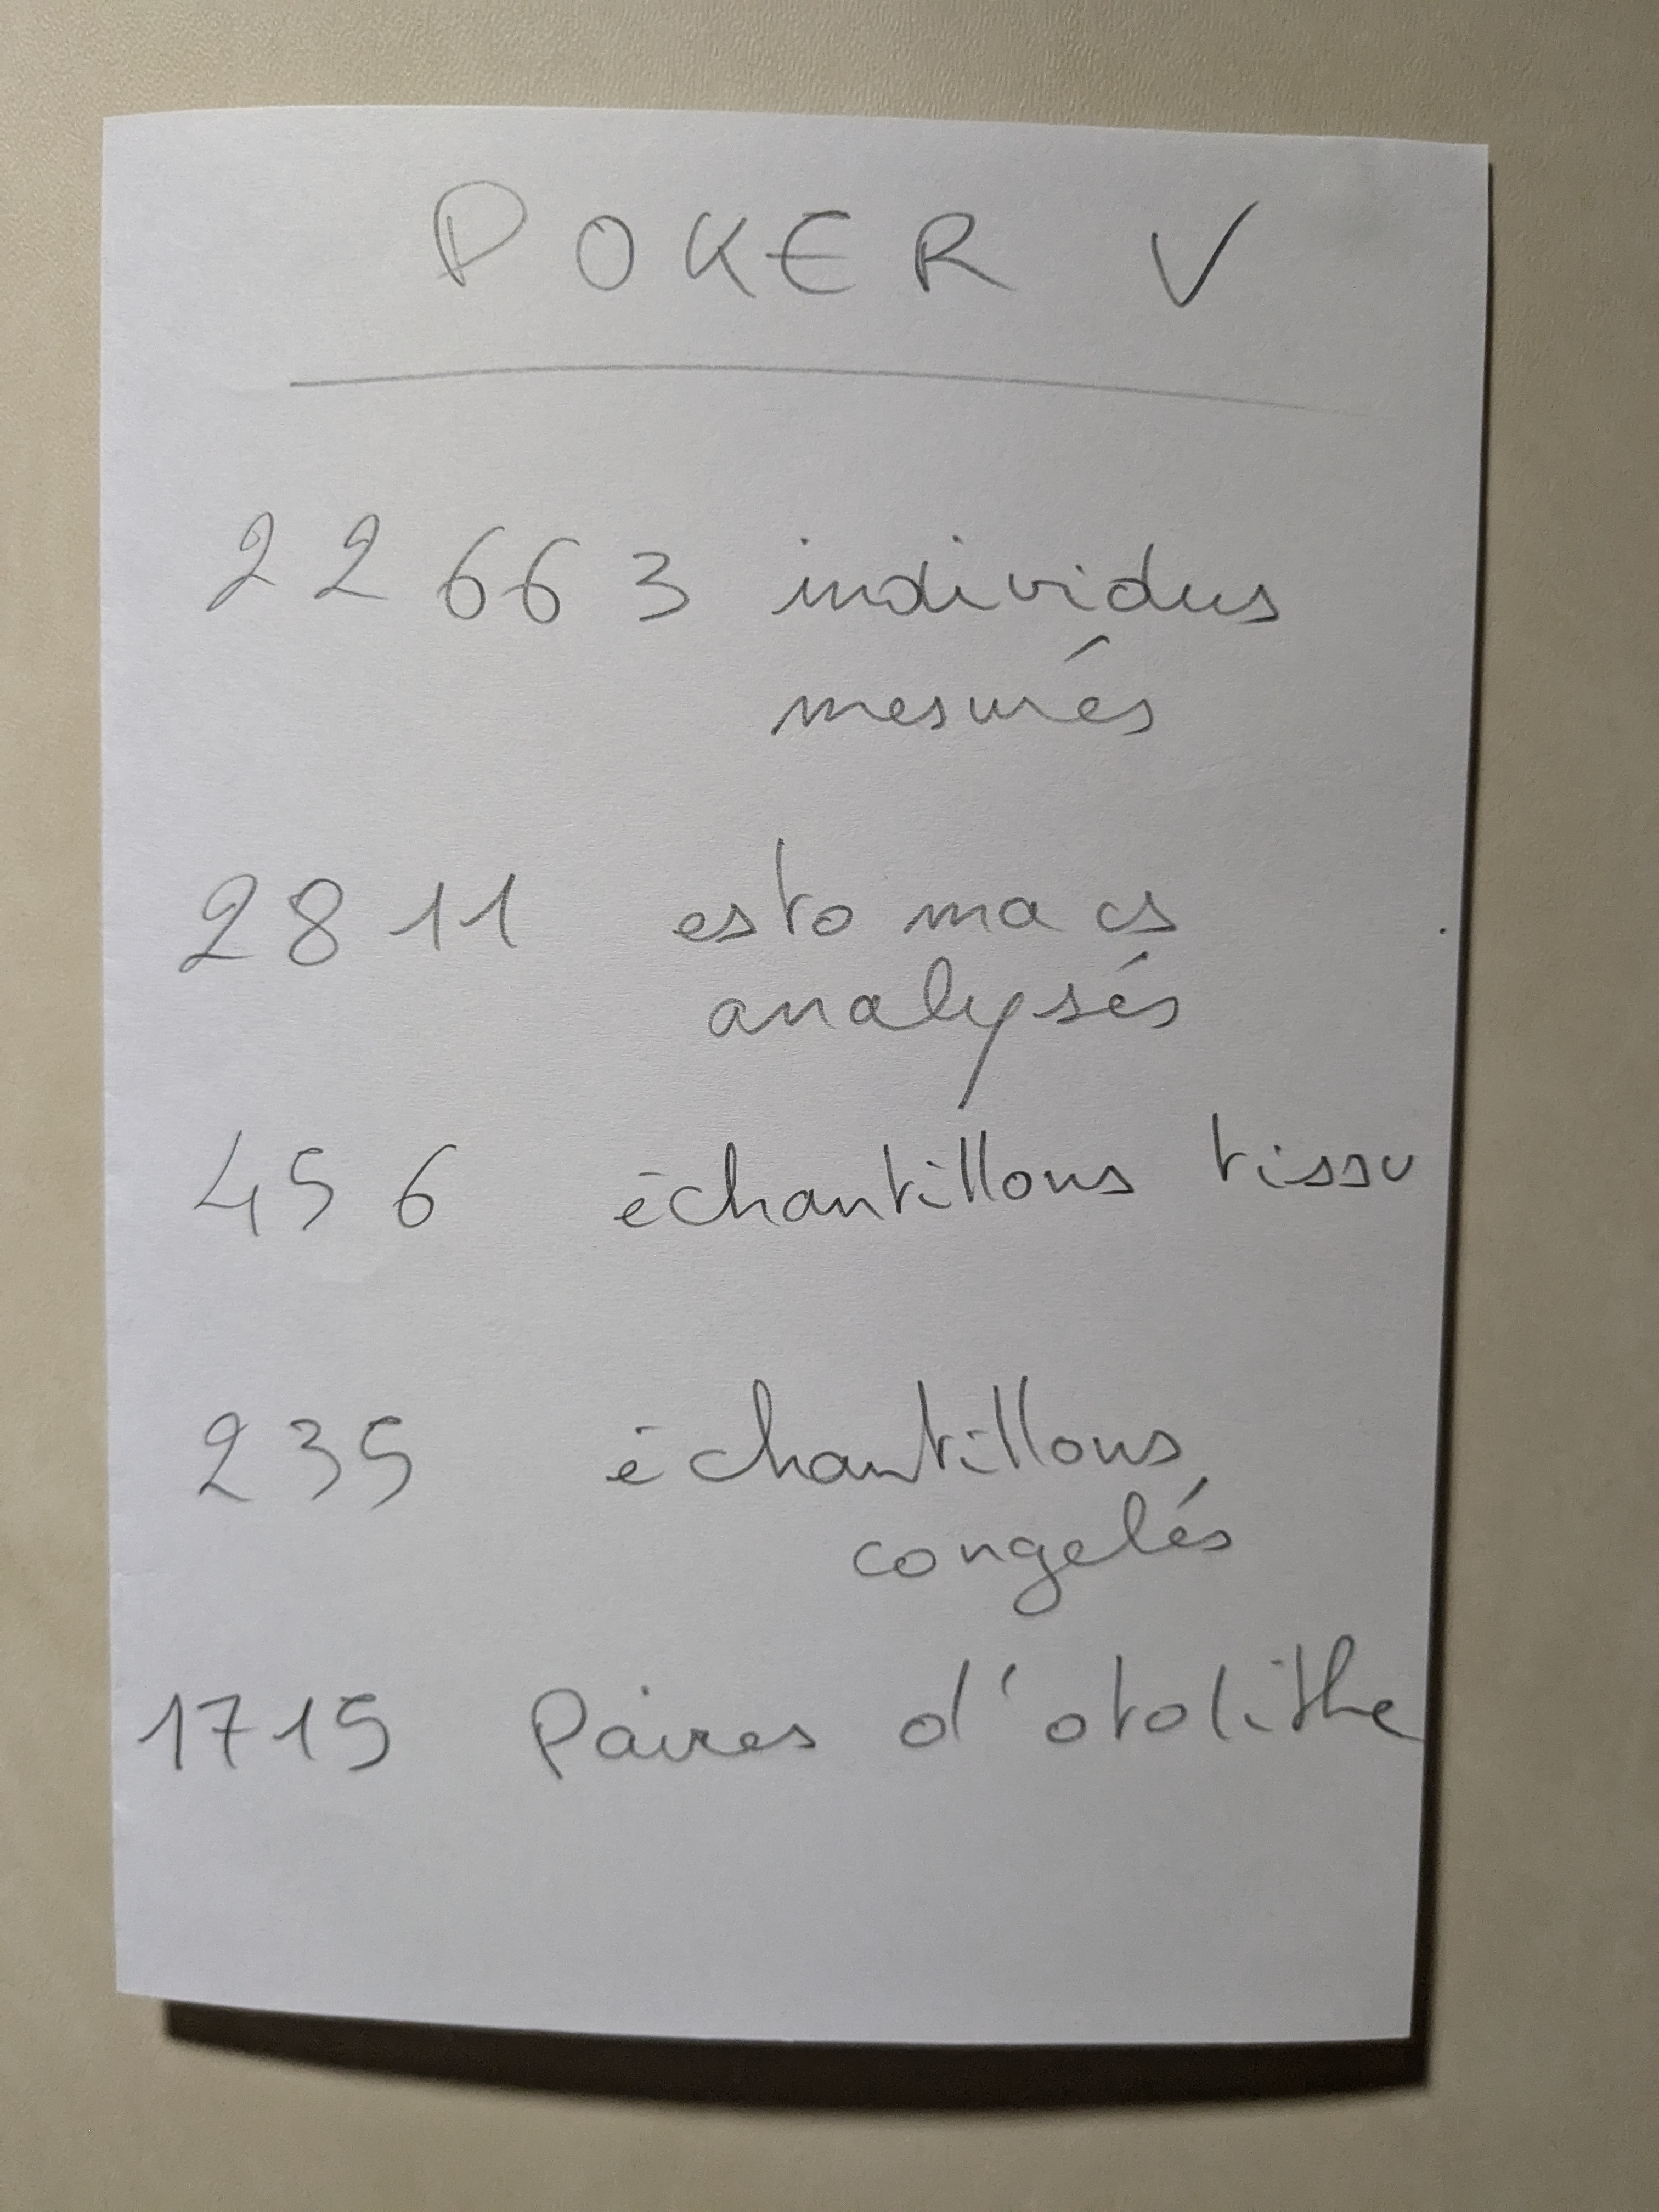 POKER V
22 663 individus
mesurés
2811 estomacs
analysés
456 échantillons tissu
235 échantillons
congelés
1715 Paires d'otolithe